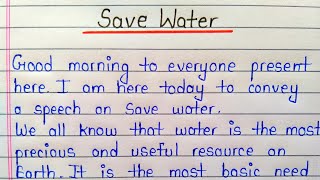 Save Water
Good morning to everyone present
here. I am here today to convey
a speech on save water.
We all know that water is the most
precious and useful resource on
Earth. It is the most basic need